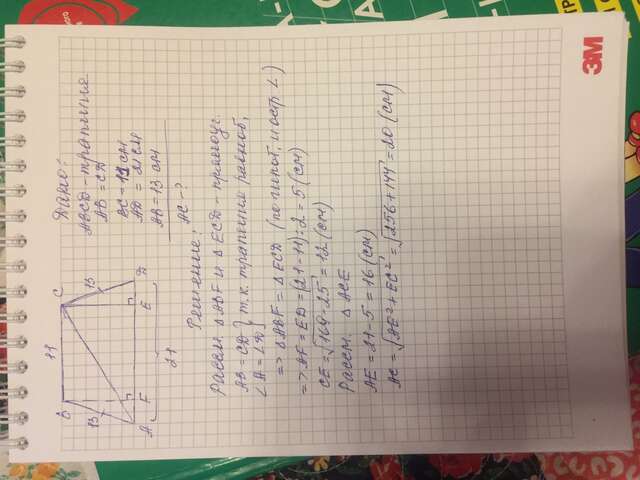 Дано:
ABCD - трапеция
AB = CD
BC = 11 см
AD = 21 см
AB = 13 см
AC - ?
B 11 C
13 13
A F E D
21
Решение:
Рассм. △ABF и △ECD - прямоуг.
AB = CD } т.к. трапеция равноб,
∠A = ∠D
=> △ABF = △ECD (по гипот. и остр ∠)
=> AF = ED = (21-11):2 = 5 (см)
CE = √169-25 = 12 (см)
Рассм. △ACE
AE = 21-5 = 16 (см)
AC = √AE²+EC² = √256+144 = 20 (см)
3M